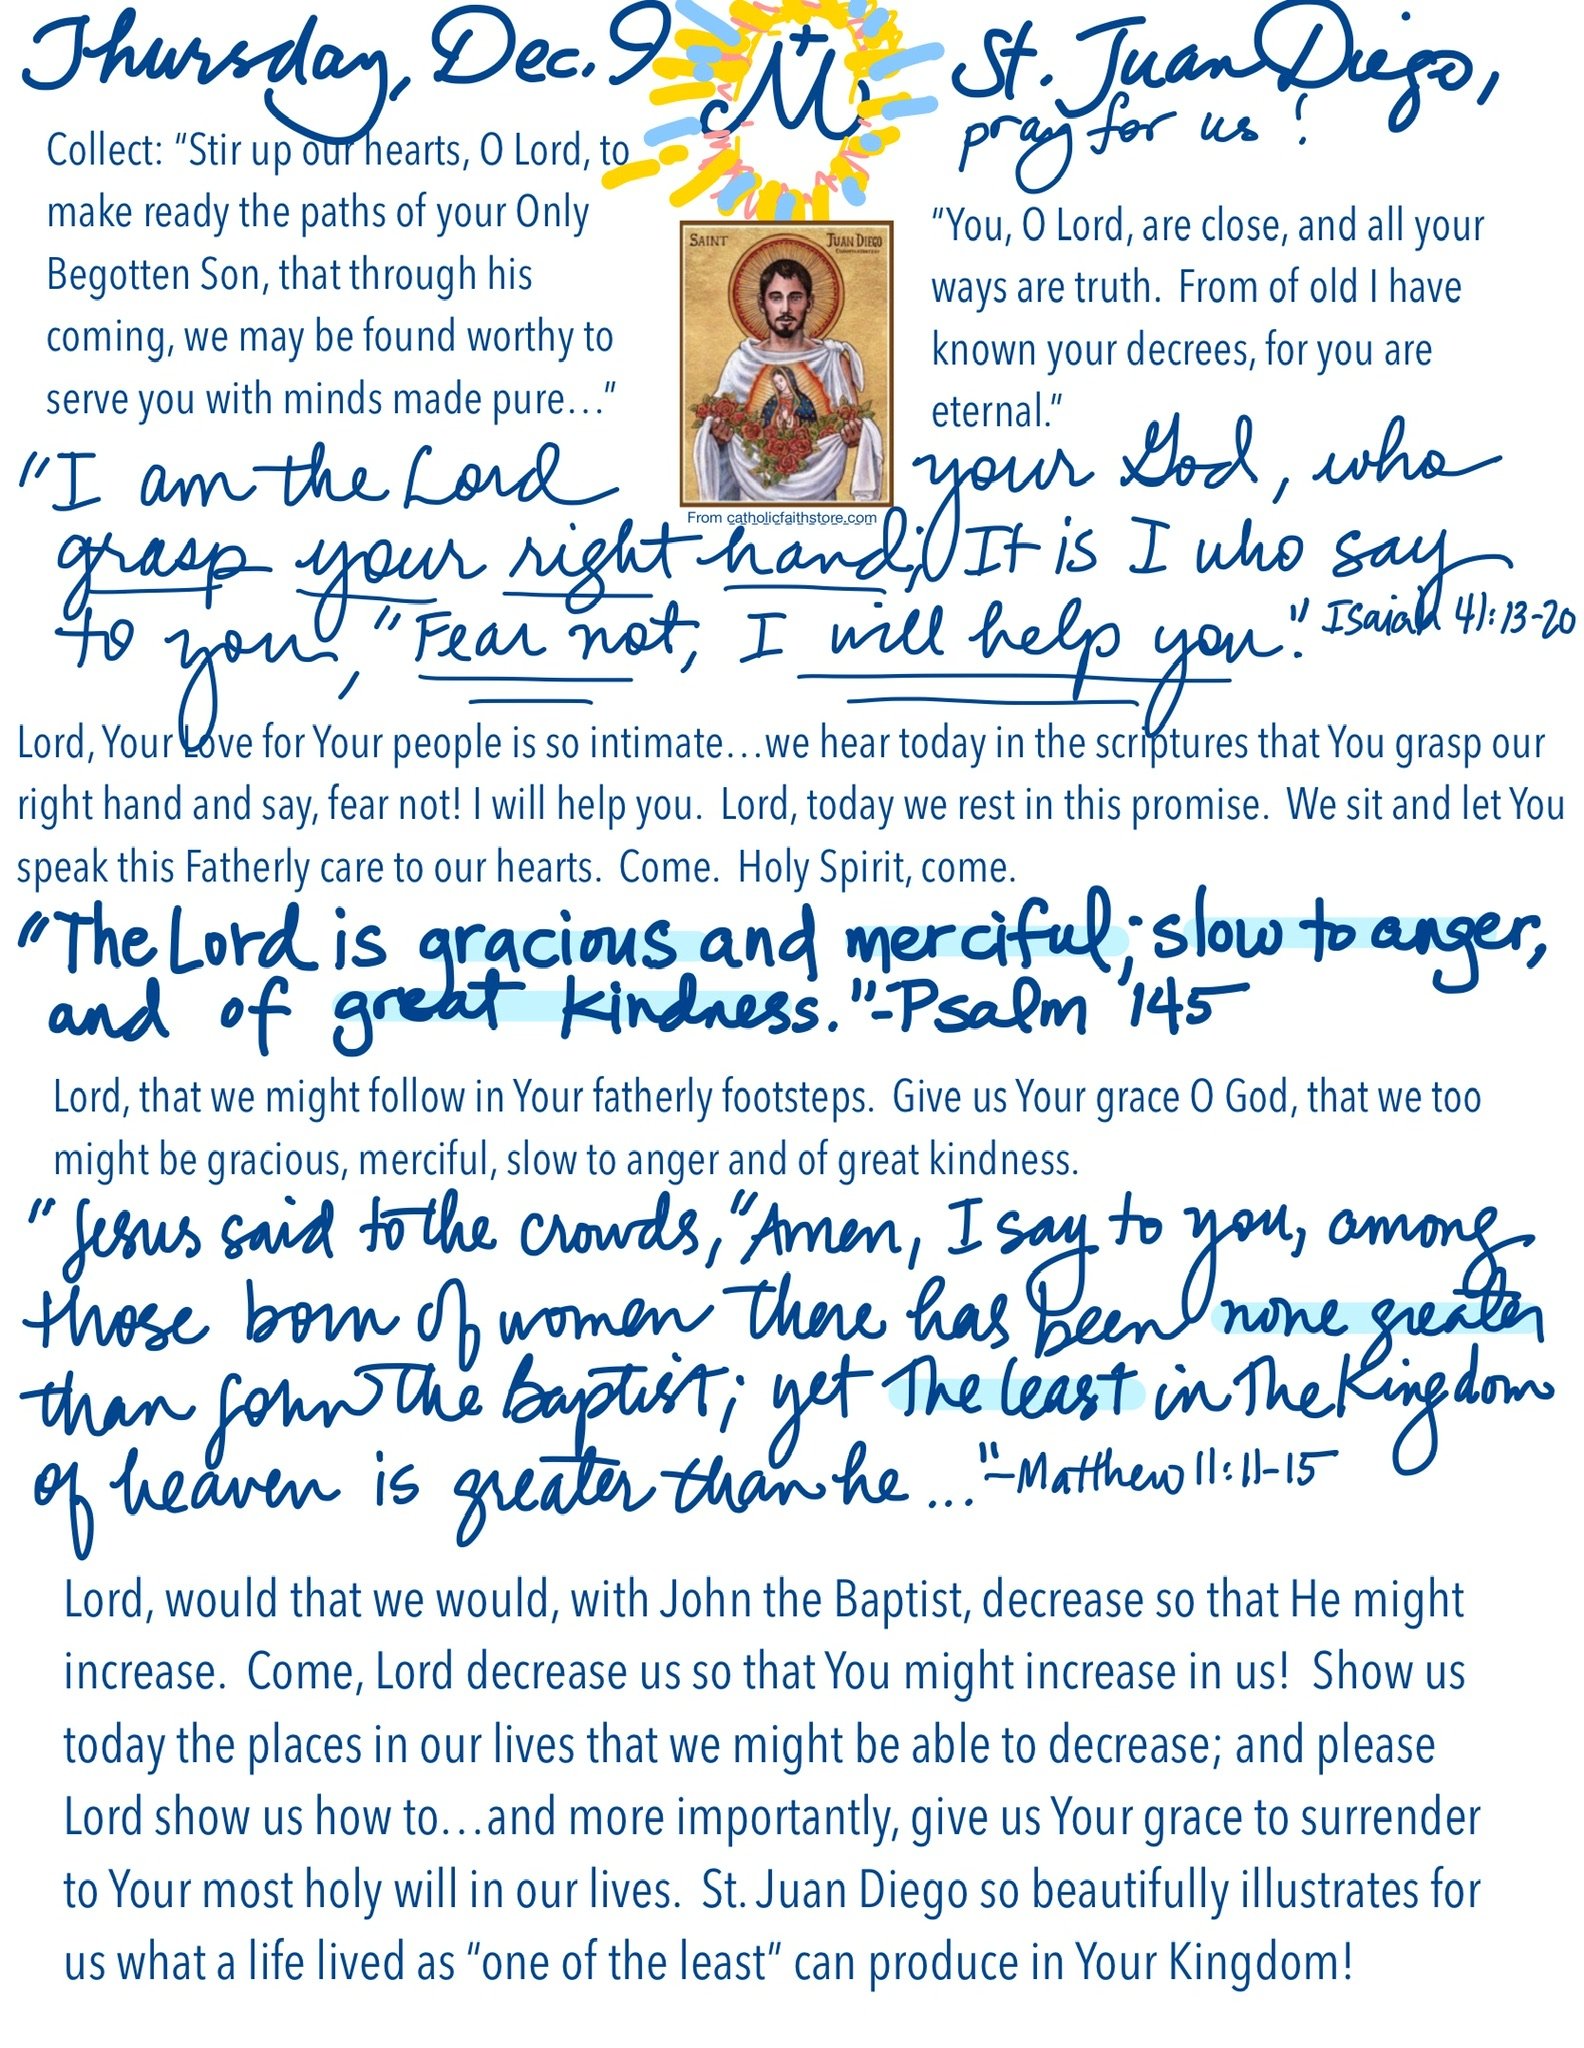 Thursday, Dec. 9
M
St. Juan Diego,
pray for us!
Collect: “Stir up our hearts, O Lord, to
make ready the paths of your Only
Begotten Son, that through his
coming, we may be found worthy to
serve you with minds made pure…”
SAINT JUAN DIEGO
From catholicfaithstore.com
“You, O Lord, are close, and all your
ways are truth.  From of old I have
known your decrees, for you are
eternal.”
"I am the Lord your God, who
grasp your right hand; It is I who say
to you, "Fear not, I will help you." Isaiah 41:13-20
Lord, Your Love for Your people is so intimate…we hear today in the scriptures that You grasp our
right hand and say, fear not! I will help you.  Lord, today we rest in this promise.  We sit and let You
speak this Fatherly care to our hearts.  Come.  Holy Spirit, come.
"The Lord is gracious and merciful; slow to anger,
and of great kindness."-Psalm 145
Lord, that we might follow in Your fatherly footsteps.  Give us Your grace O God, that we too
might be gracious, merciful, slow to anger and of great kindness.
"Jesus said to the crowds, "Amen, I say to you, among
those born of women there has been none greater
than John the Baptist; yet the least in the Kingdom
of heaven is greater than he..."-Matthew 11:11-15
Lord, would that we would, with John the Baptist, decrease so that He might
increase.  Come, Lord decrease us so that You might increase in us!  Show us
today the places in our lives that we might be able to decrease; and please
Lord show us how to…and more importantly, give us Your grace to surrender
to Your most holy will in our lives.  St. Juan Diego so beautifully illustrates for
us what a life lived as “one of the least” can produce in Your Kingdom!